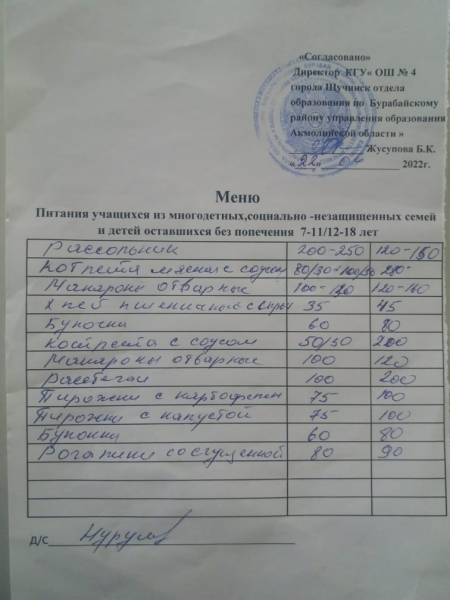 «Согласовано»
Директор КГУ« ОШ № 4
города Щучинск отдела
образования по Бурабайскому
району управления образования
Акмолинской области »
Жусупова Б.К.
«22» 04 2022г.
Меню
Питания учащихся из многодетных,социально -незащищенных семей
и детей оставшихся без попечения 7-11/12-18 лет
Рассольник 200-250
Котлета мясная с соусом
Макароны отварные 100-120 120-140
Хлеб пшеничный 35 45
Булочки 60 80
Котлета с соусом 50/50 200
Макароны отварные 100 120
Расстегаи 100 200
Пирожки с картофелем 75 100
Пирожки с капустой 75 100
Булочки 60 80
Рогалики со сгущенкой 80 90
Д/С